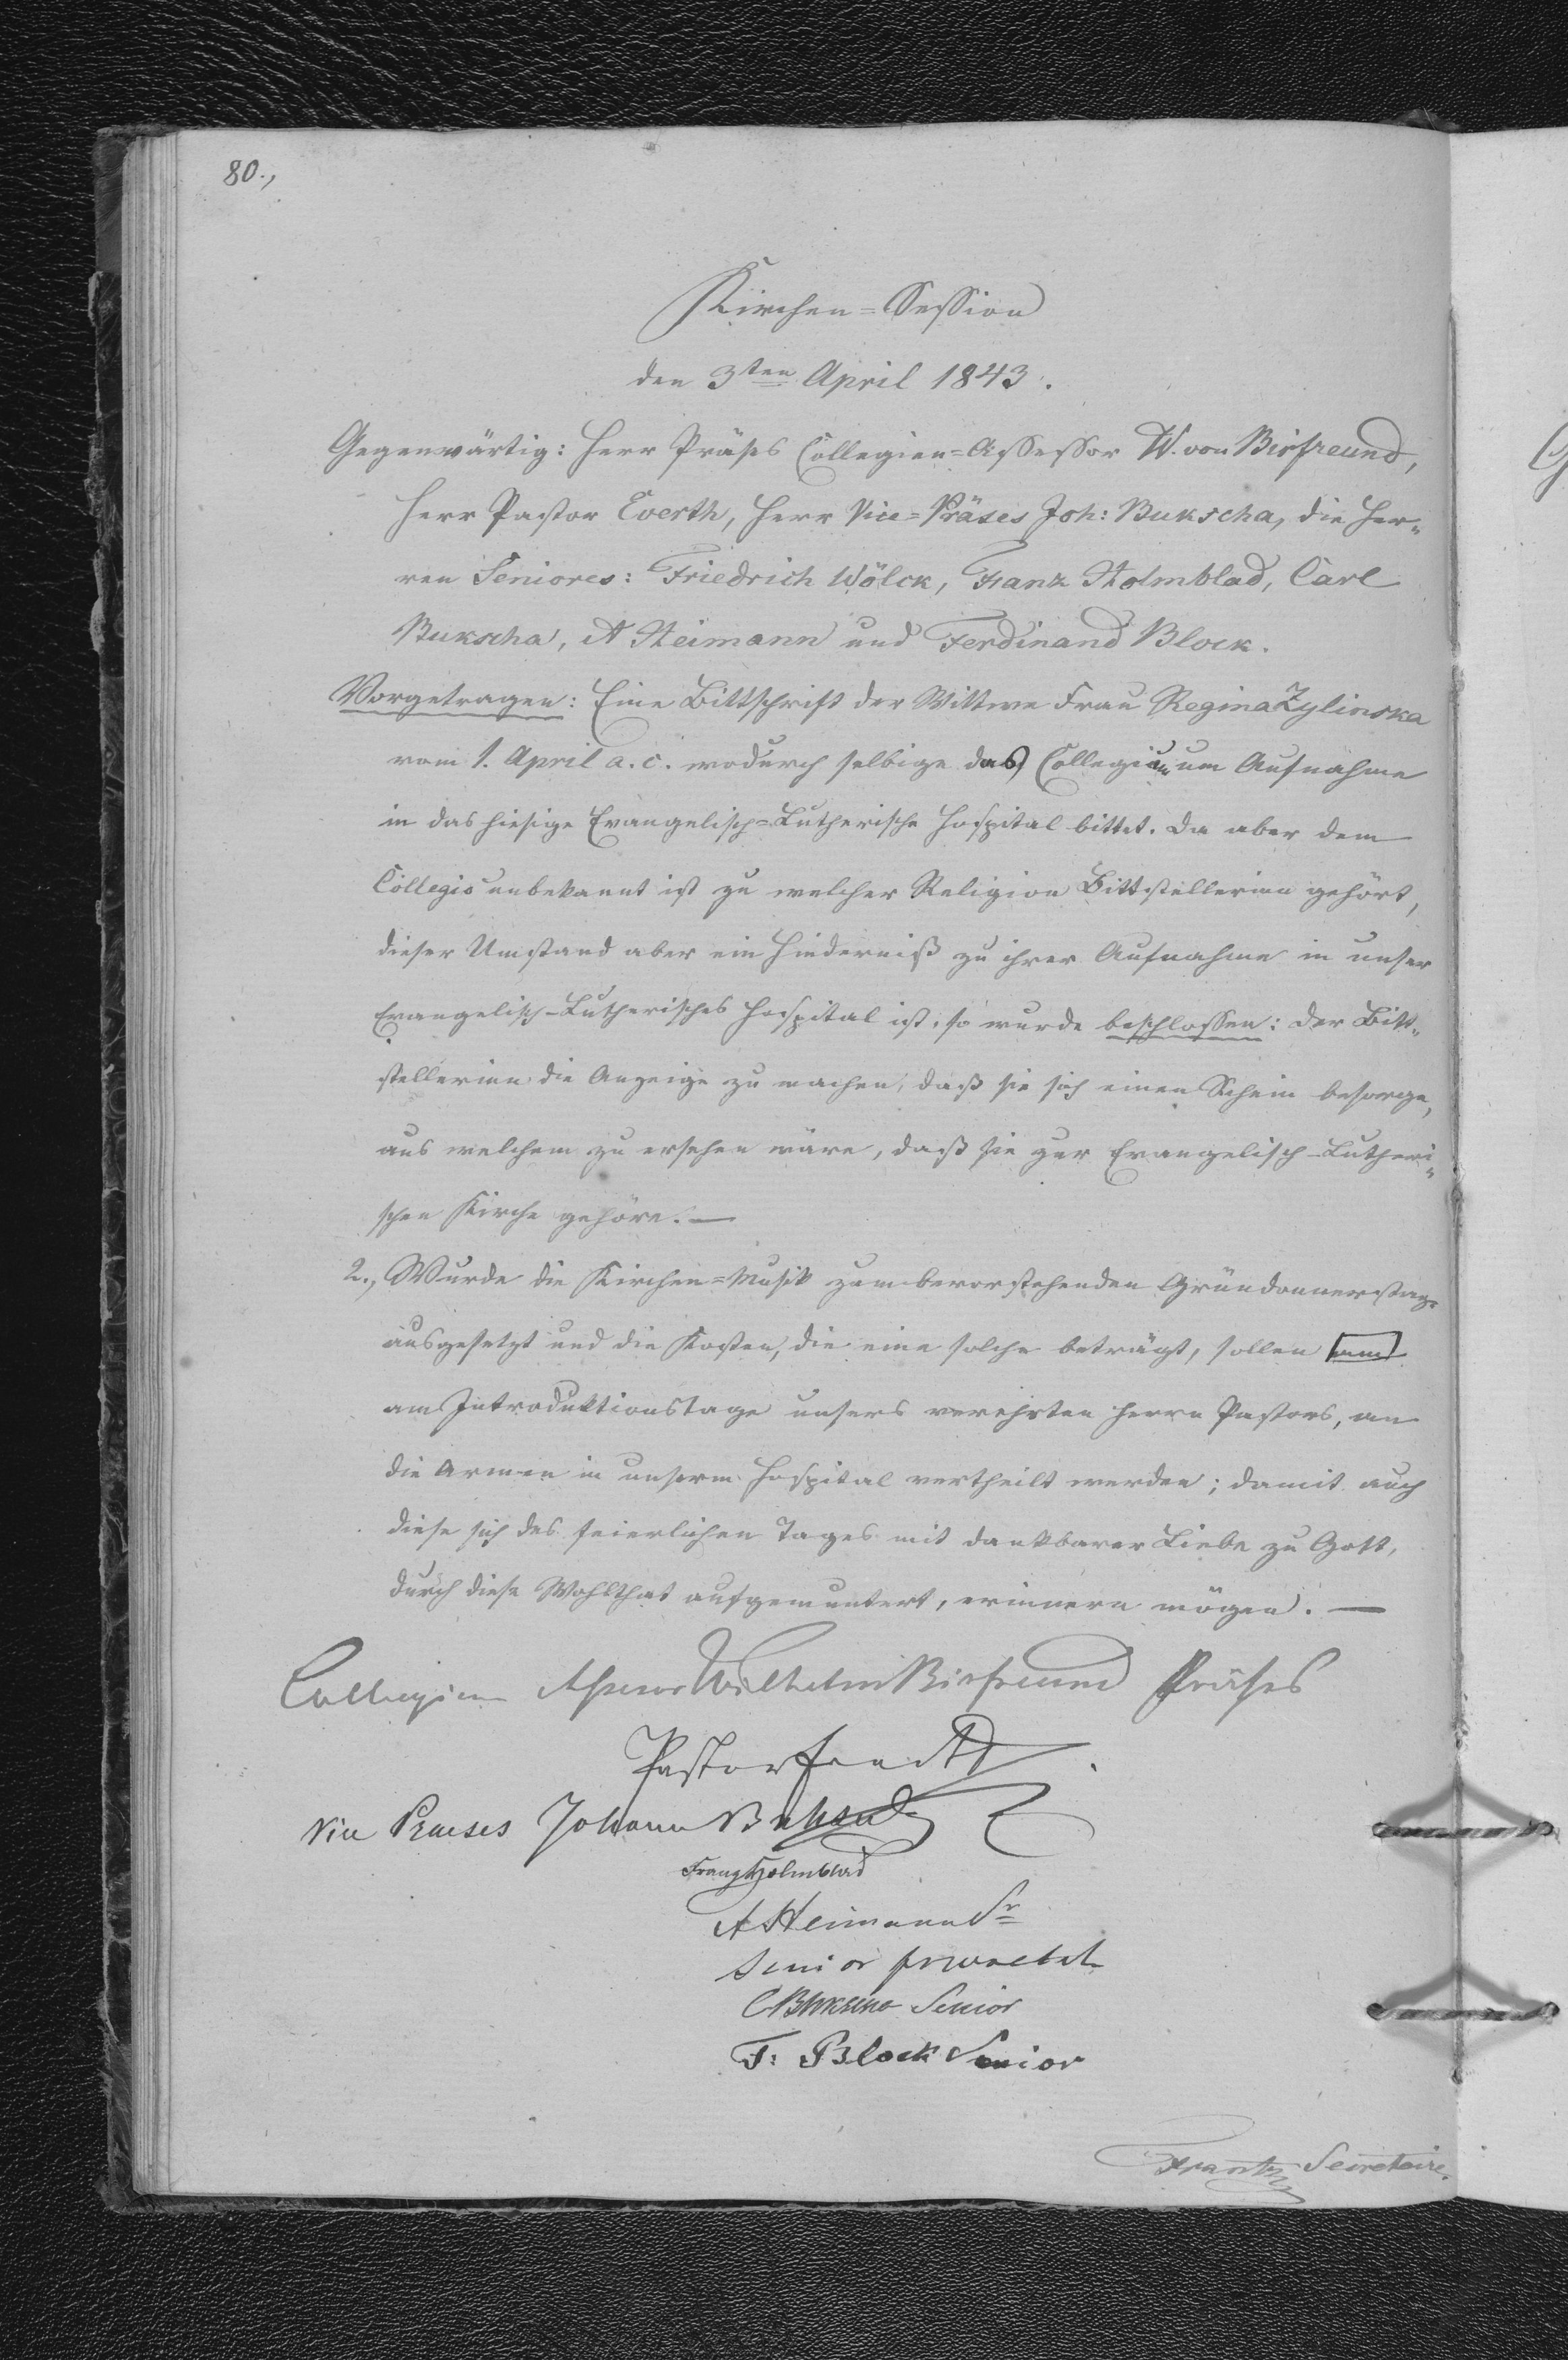 80.,
Kirchen=Session
den 3ten April 1843.
Gegenwärtig: Herr Präses Collegien=Assessor W. von Birfreund,
Herr Pastor Everth, Herr Vice=Präses Joh: Bukscha, die Her„
ren Seniores: Friedrich Wölck, Franz Holmblad, Carl
Bukscha, A Heimann und Ferdinand Block.
Vorgetragen: Eine Bittschrift der Wittwe Frau Regina Zylinska
vom 1. April a. c. wodurch selbige das Collegium um Aufnahme
in das hiesige Evangelisch=Lutherische Hospital bittet. Da aber dem
Collegio unbekannt ist zu welcher Religion Bittstellerinn gehört,
dieser Umstand aber ein Hinderniß zu ihrer Aufnahme in unser
Evangelisch-Lutherisches Hospital ist, so wurde beschlossen: der Bitt„
stellerinn die Anzeige zu machen, daß sie sich einen Schein besorge,
aus welchem zu ersehen wäre, daß sie zur Evangelisch-Lutheri„
schen Kirche gehöre. —
2., Wurde die Kirchen=Musik zum bevorstehenden Gründonnerstage
ausgesetzt und die Kosten, die eine solche beträgt, sollen
am Introduktionstage unsers verehrten Herrn Pastors, an
die Armen in unserm Hospital vertheilt werden; damit auch
diese sich des feierlichen Tages mit dankbarer Liebe zu Gott,
durch diese Wohlthat aufgemuntert, erinnern mögen. —
Collegien Assessor Wilhelm Birfreund Präses
Pastor Everth
Vice Praeses Johann Bukscha
Franz Holmblad
A Heimann Sr
Senior
C Bukscha Senior
F: Block Senior
Frantz Secretaire.